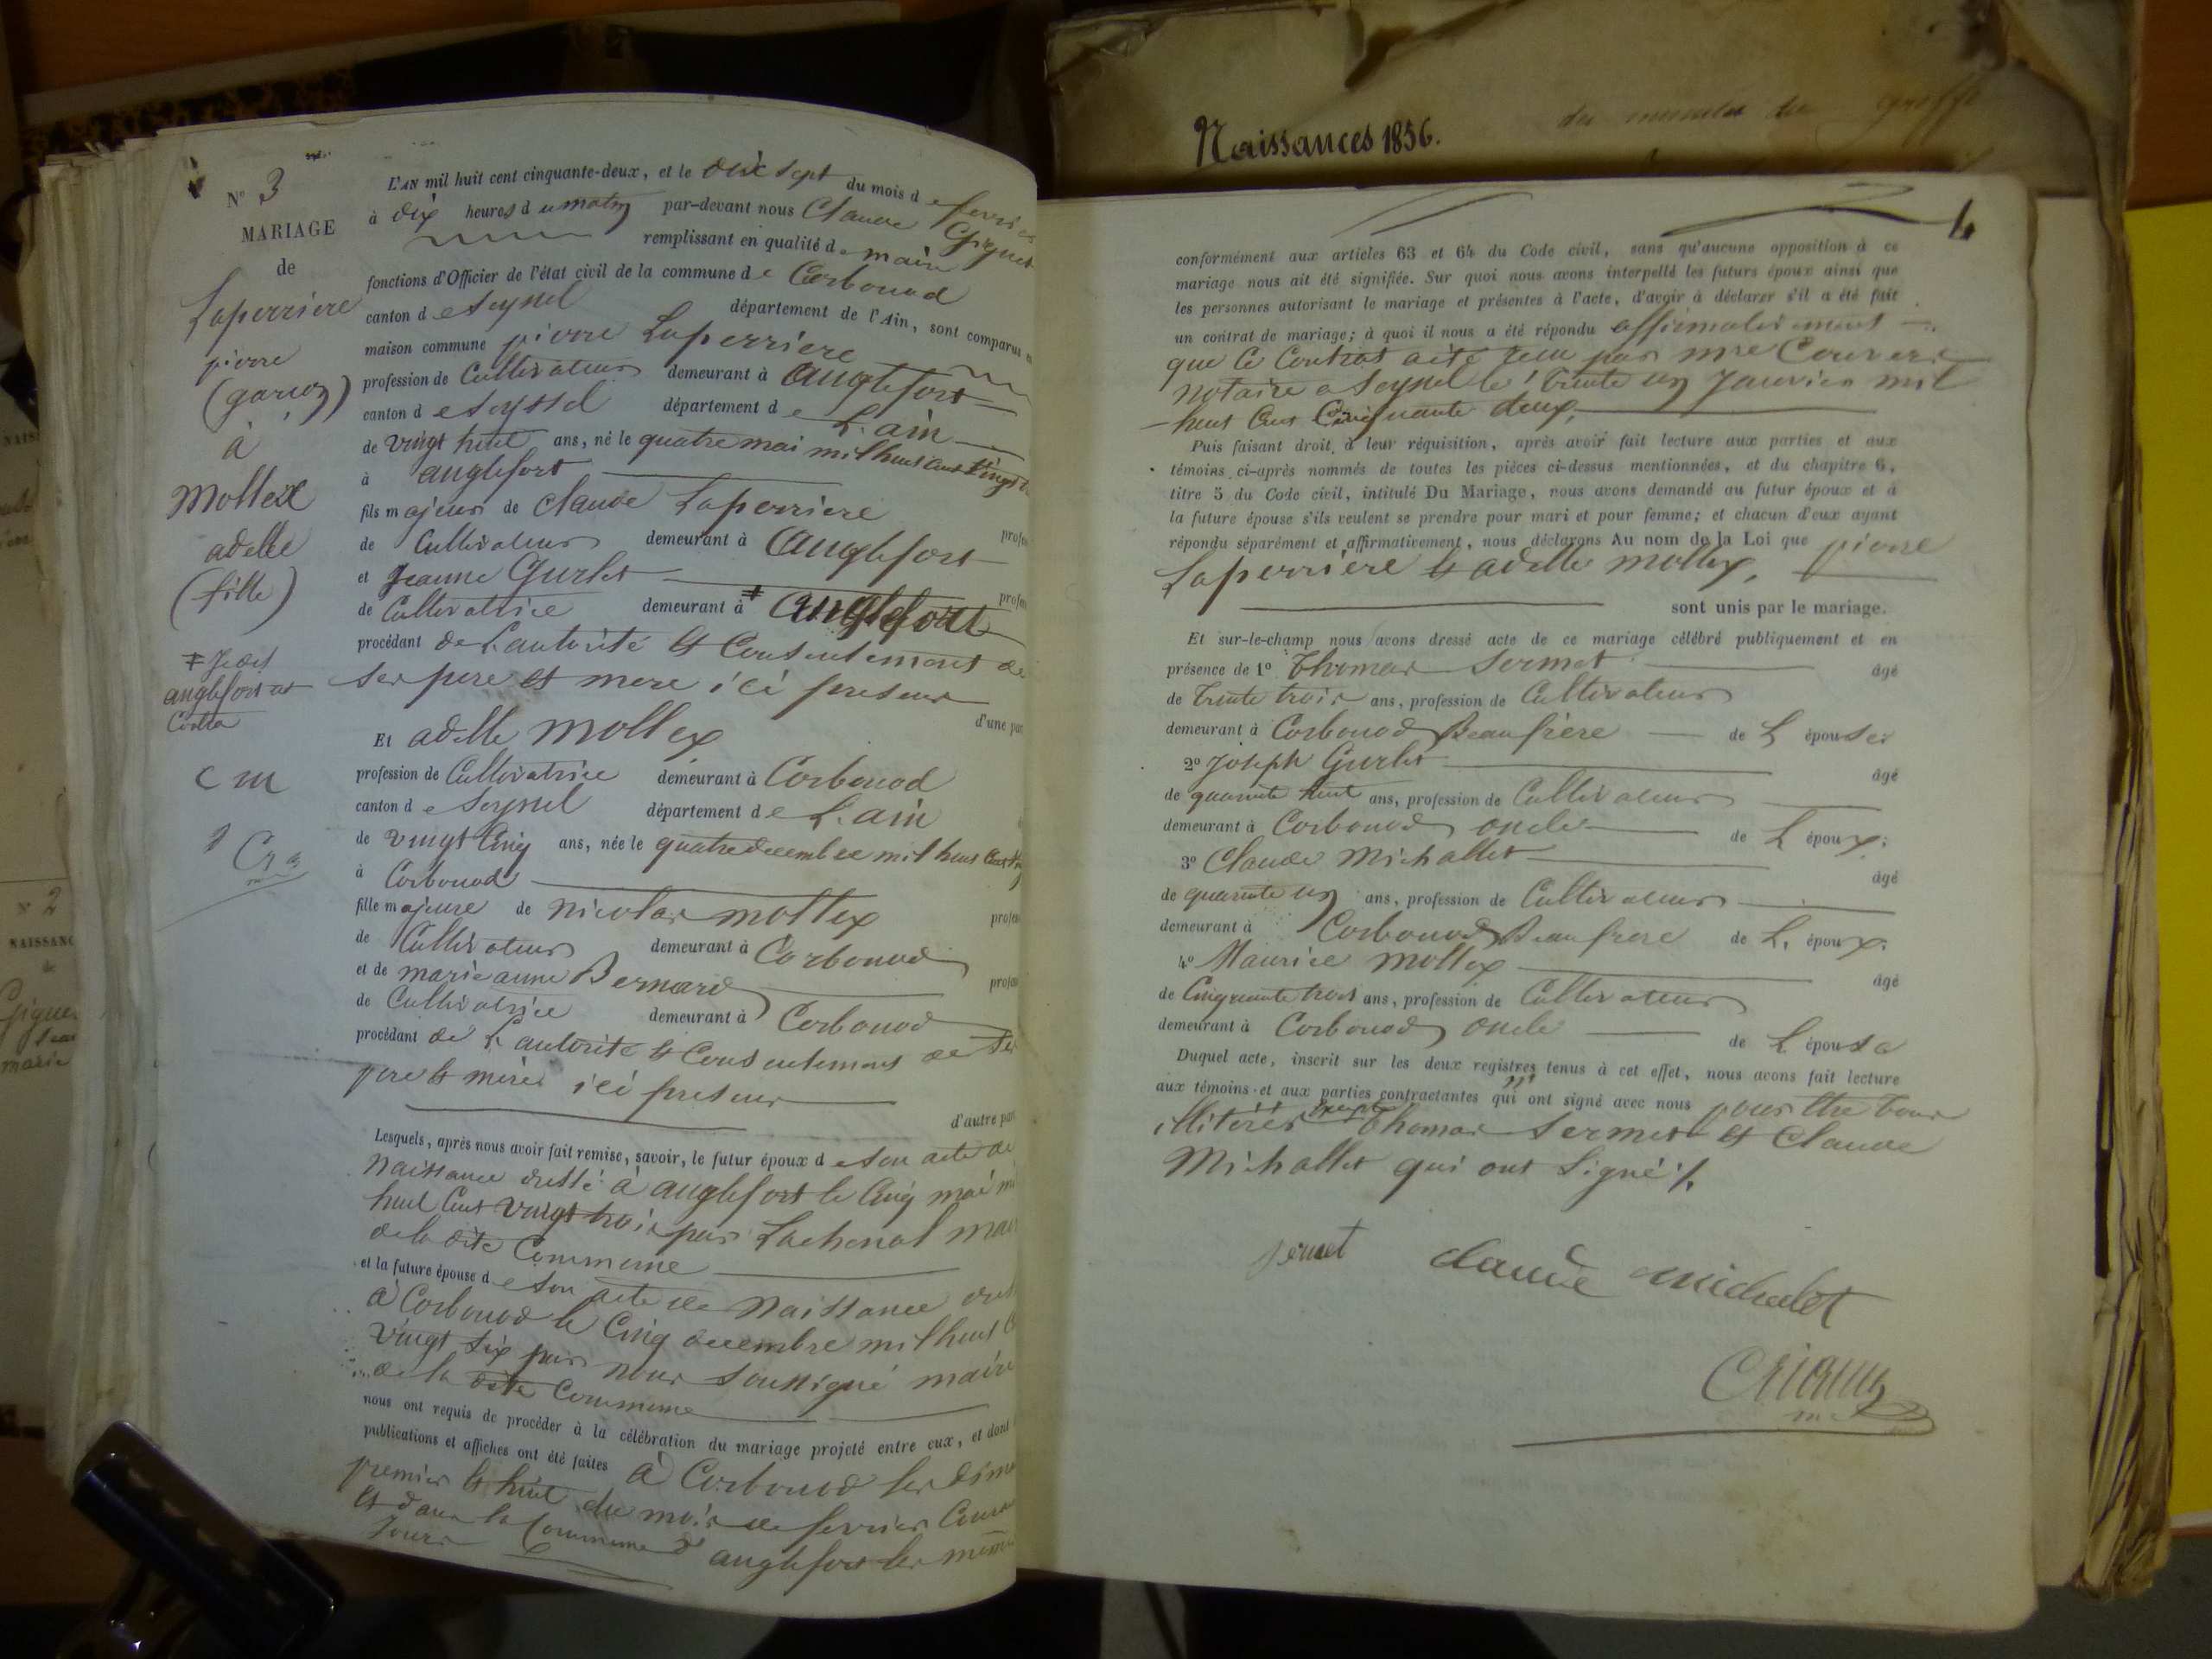 Naissances 1856.
du greffe
N° 3
MARIAGE
de
Laperriere
pierre
(garçon)
à
Mollex
adelle
(fille)
anglefort
C M
L'AN mil huit cent cinquante-deux, et le dix sept du mois de fevrier
à dix heures du matin par-devant nous Claude
remplissant en qualité de maire
fonctions d'Officier de l'état civil de la commune de Corbonod
canton de Seyssel département de l'Ain, sont comparus en
maison commune pierre Laperriere
profession de Cultivateur demeurant à anglefort
canton de Seyssel département de L'ain
de vingt huit ans, né le quatre mai mil huit cent vingt
à anglefort
fils majeur de Claude Laperriere
de Cultivateur demeurant à anglefort
et Jeanne Gurlet
de Cultivatrice demeurant à anglefort
procédant de L'autorité et Consentement de
ses pere et mere ici presens
d'une par
Et adelle mollex
profession de Cultivatrice demeurant à Corbonod
canton de Seyssel département de L'ain
de vingt Cinq ans, née le quatre decembre mil huit Cent
à Corbonod
fille majeure de nicolas mollex
de Cultivateur demeurant à Corbonod
et de marie anne Bernard
de Cultivatrice demeurant à Corbonod
procédant de L'autorité et Consentement de ses
pere et mere ici presens
d'autre par
Lesquels, après nous avoir fait remise, savoir, le futur époux de son acte de
Naissance dressé à anglefort le Cinq mai
huit Cent vingt trois par Lachenal
de la dite Commune
et la future épouse de son acte de Naissance
à Corbonod le Cinq decembre mil huit
vingt six par nous soussigné maire
de la dite Commune
nous ont requis de procéder à la célébration du mariage projeté entre eux, et dont
publications et affiches ont été faites à Corbonod les
premier et huit du mois de fevrier
et dans la Commune d'anglefort les
jours
4
conformément aux articles 63 et 64 du Code civil, sans qu'aucune opposition à ce
mariage nous ait été signifiée. Sur quoi nous avons interpellé les futurs époux ainsi que
les personnes autorisant le mariage et présentes à l'acte, d'avoir à déclarer s'il a été fait
un contrat de mariage; à quoi il nous a été répondu affirmativement
que le Contrat a été reçu par mre
notaire a Seyssel le trente un Janvier mil
huit Cent Cinquante deux.
Puis faisant droit à leur réquisition, après avoir fait lecture aux parties et aux
témoins ci-après nommés de toutes les pièces ci-dessus mentionnées, et du chapitre 6,
titre 5 du Code civil, intitulé Du Mariage, nous avons demandé au futur époux et à
la future épouse s'ils veulent se prendre pour mari et pour femme; et chacun d'eux ayant
répondu séparément et affirmativement, nous déclarons Au nom de la Loi que pierre
Laperrière et adelle mollex,
sont unis par le mariage.
Et sur-le-champ nous avons dressé acte de ce mariage célébré publiquement et en
présence de 1° Thomas Sermet âgé
de trente trois ans, profession de Cultivateur
demeurant à Corbonod Beaufrère de L épouse
2° Joseph Gurlet âgé
de quarante huit ans, profession de Cultivateur
demeurant à Corbonod oncle de L époux;
3° Claude Michallet âgé
de quarante un ans, profession de Cultivateur
demeurant à Corbonod Beaufrere de L époux;
4° Maurice mollex âgé
de Cinquante trois ans, profession de Cultivateur
demeurant à Corbonod oncle de L épouse
Duquel acte, inscrit sur les deux registres tenus à cet effet, nous avons fait lecture
aux témoins et aux parties contractantes qui n' ont signé avec nous pour etre tous
illitérés excepté Thomas Sermet et Claude
Michallet qui ont signé ./.
Sermet claude michalet
N° 2
NAISSANC
de
marie